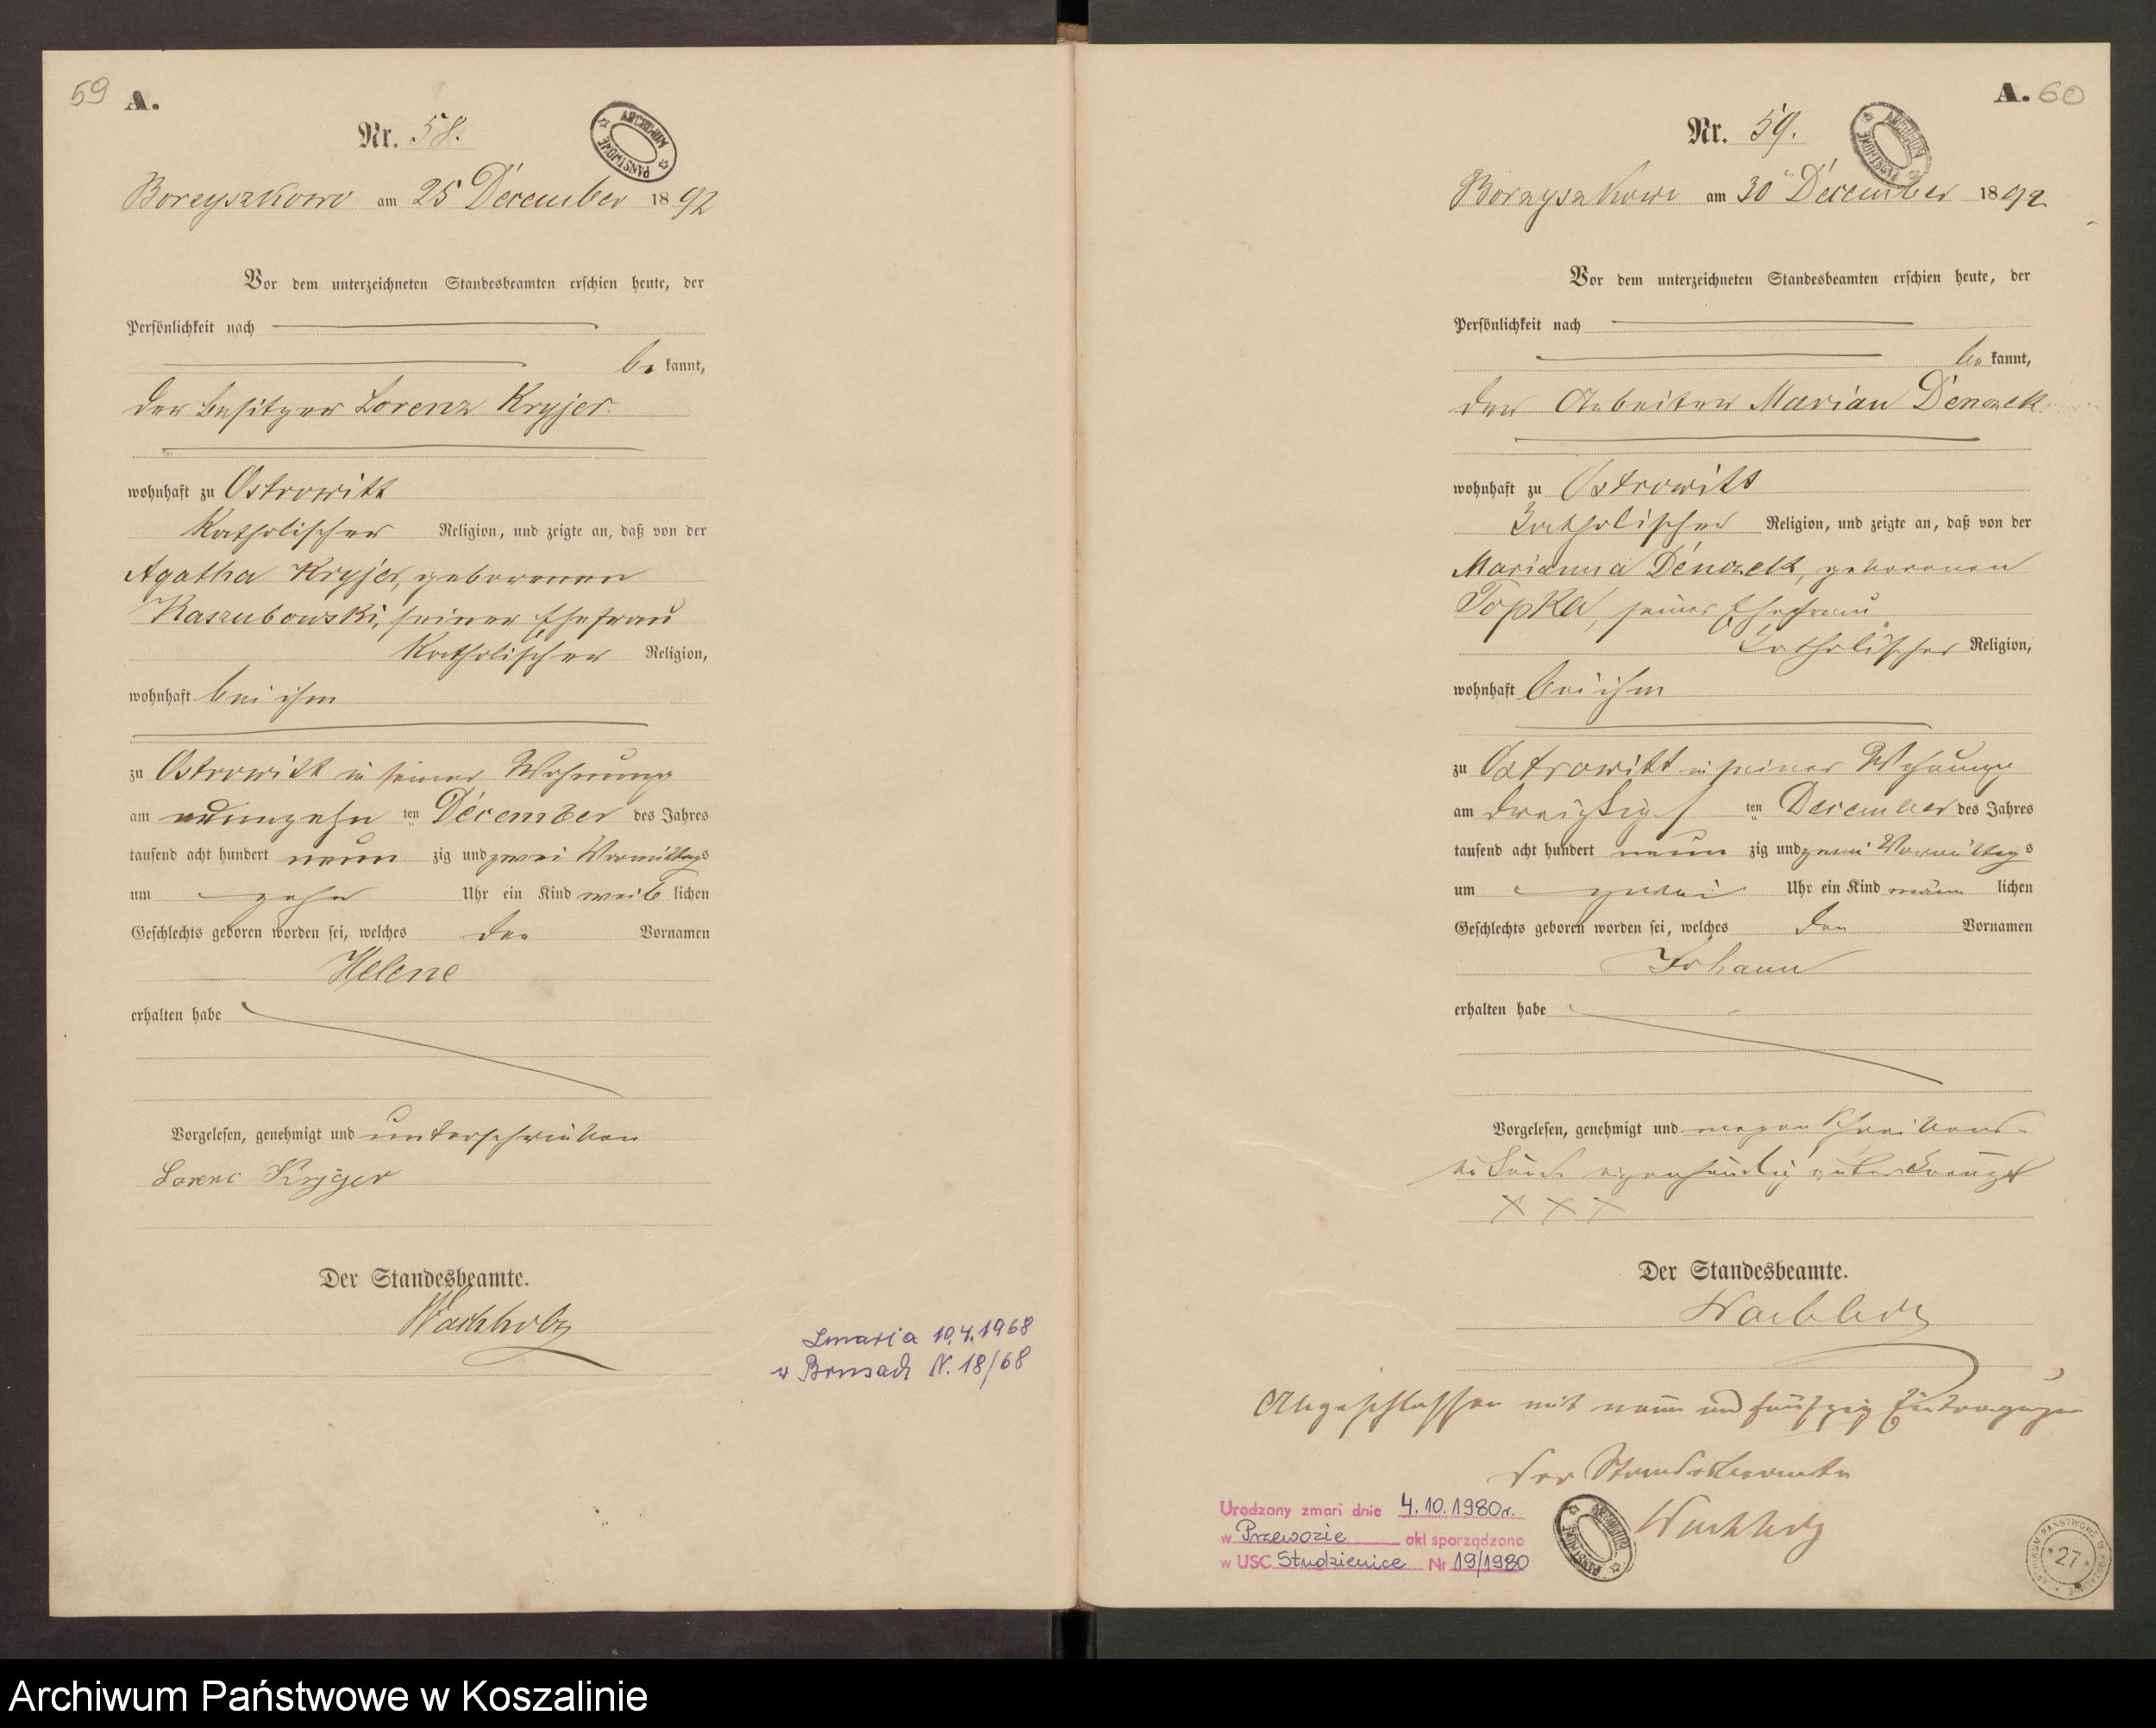 59 A.
Nr. 58.
ARCHIWUM PAŃSTWOWE
Boreyszkowo am 25 December 1892
Vor dem unterzeichneten Standesbeamten erschien heute, der
Persönlichkeit nach
be kannt,
der Besitzer Lorenz Kryjer.
wohnhaft zu Ostrowitt
Katholischer Religion, und zeigte an, daß von der
Agatha Kryjer, geborenen
Kaszubowski, seiner Ehefrau
Katholischer Religion,
wohnhaft bei ihm
zu Ostrowitt in seiner Wohnung
am neunzehn ten December des Jahres
tausend acht hundert neun zig und zwei Vormittags
um zehn Uhr ein Kind weib lichen
Geschlechts geboren worden sei, welches den Vornamen
Helene
erhalten habe
Vorgelesen, genehmigt und unterschrieben
Lorenc Kryger
Der Standesbeamte.
Wachholz
Zmarła 10.4.1968
w Brusach N. 18/68
A. 60
Nr. 59.
ARCHIWUM PAŃSTWOWE
Borzyszkowo am 30 December 1892
Vor dem unterzeichneten Standesbeamten erschien heute, der
Persönlichkeit nach
be kannt,
der Arbeiter Marian Denczek
wohnhaft zu Ostrowitt
Katholischer Religion, und zeigte an, daß von der
Marianna Denczek, geborenen
Topka, seiner Ehefrau
Katholischer Religion,
wohnhaft bei ihm
zu Ostrowitt in seiner Wohnung
am dreißigs ten December des Jahres
tausend acht hundert neun zig und zwei Vormittags
um zwei Uhr ein Kind männ lichen
Geschlechts geboren worden sei, welches den Vornamen
Johann
erhalten habe
Vorgelesen, genehmigt und wegen Schreibens-
eigenhändig unterkreuzt
X X X
Der Standesbeamte.
Wachholz
Abgeschlossen mit neun und fünfzig Eintragungen
Der Standesbeamte
Wachholz
Urodzony zmarł dnia 4.10.1980r.
w Przewozie akt sporządzono
w USC Studzienice Nr 19/1980
ARCHIWUM PAŃSTWOWE
ARCHIWUM PAŃSTWOWE W KOSZALINIE
*27*
Archiwum Państwowe w Koszalinie